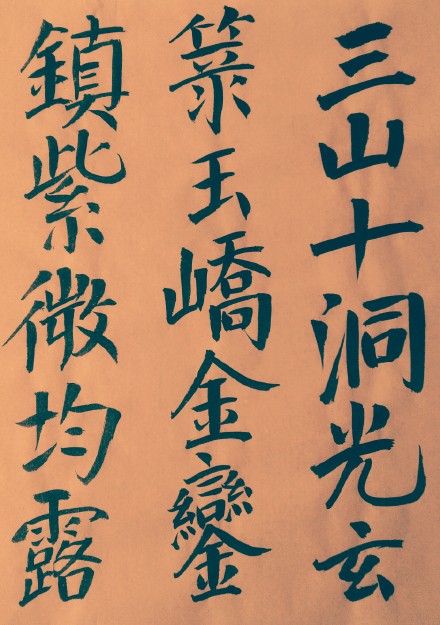 三山十洞光玄
箓玉嶠金鑾
鎮紫微均露